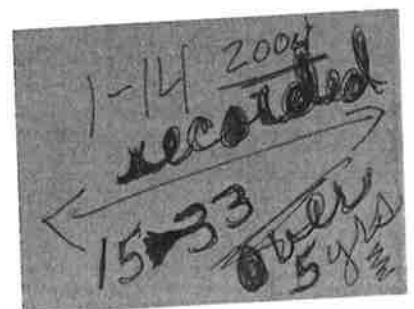 1-14 2004
recorded
15-33 over
5 yrs